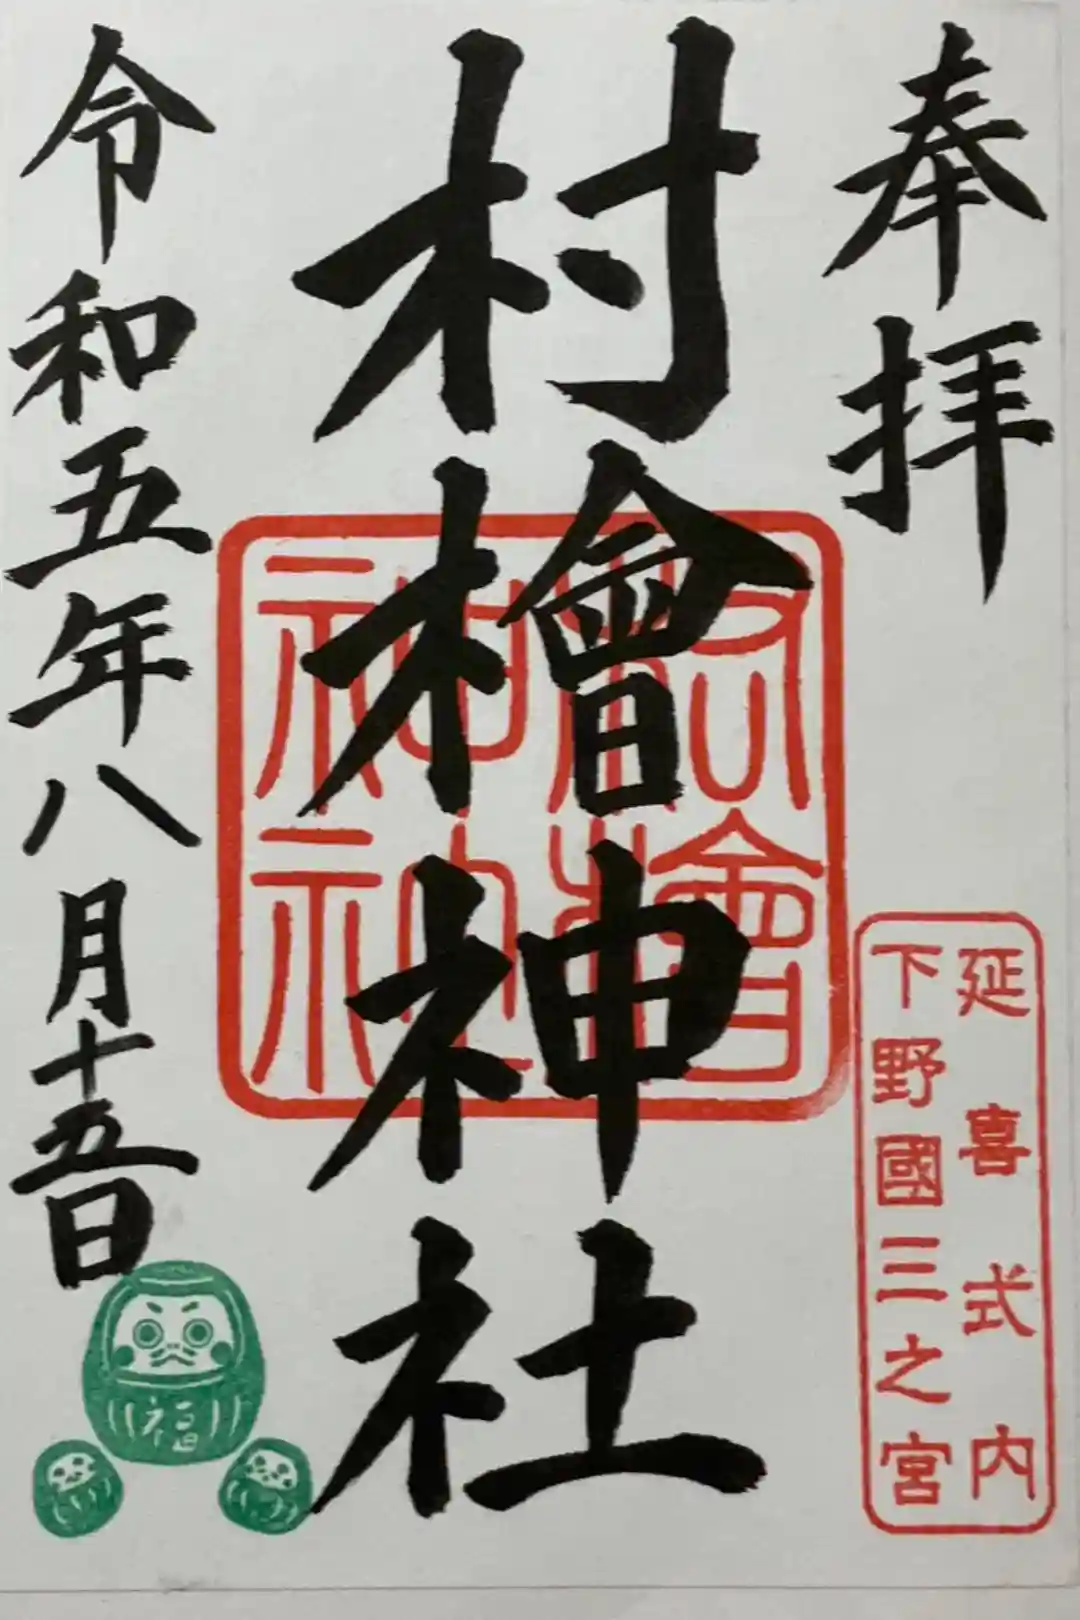 奉拝
延喜式内
下野國三之宮
村檜神社
村檜神社
令和五年八月十五日
福